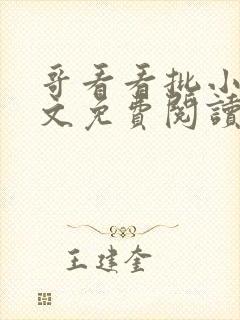 哥看看批小
文免費閱讀
王建奎